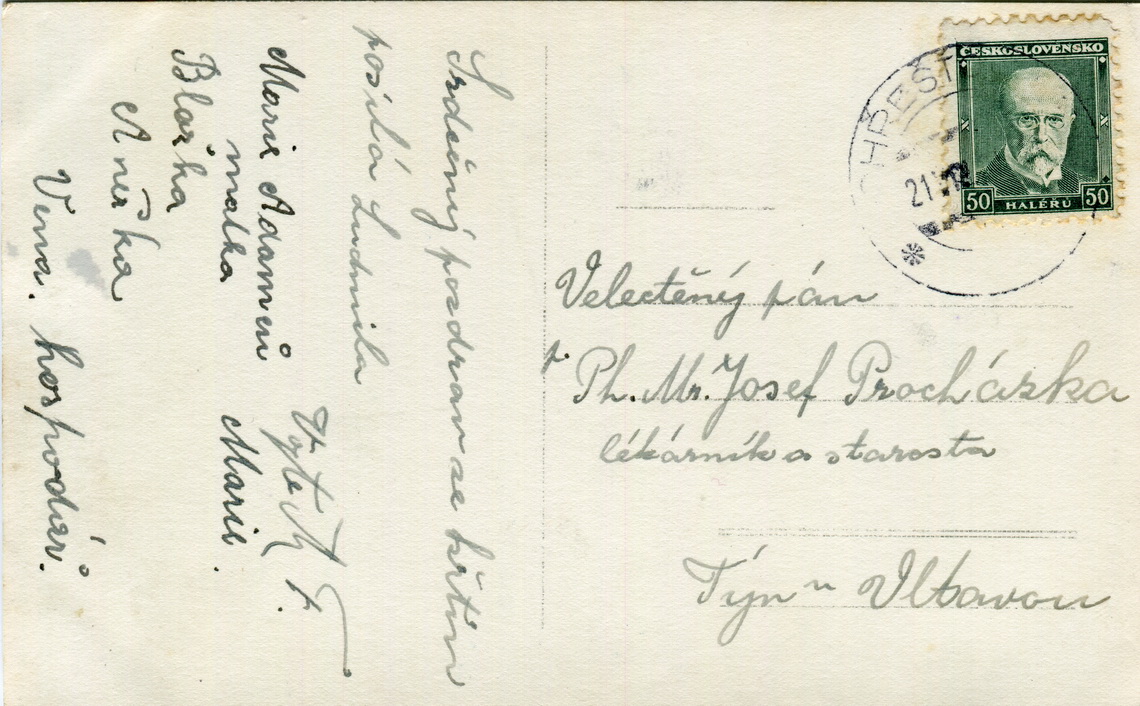 Srdečný pozdrav ze křtin
posílá Ludmila
Marie Adamců
matka Marie.
Blažka
Anežka
hospodář.
ČESKOSLOVENSKO
50 HALÉŘŮ 50
21
Velectěný pán
Ph. Mr. Josef Procházka
lékárník a starosta
Týn n Vltavou